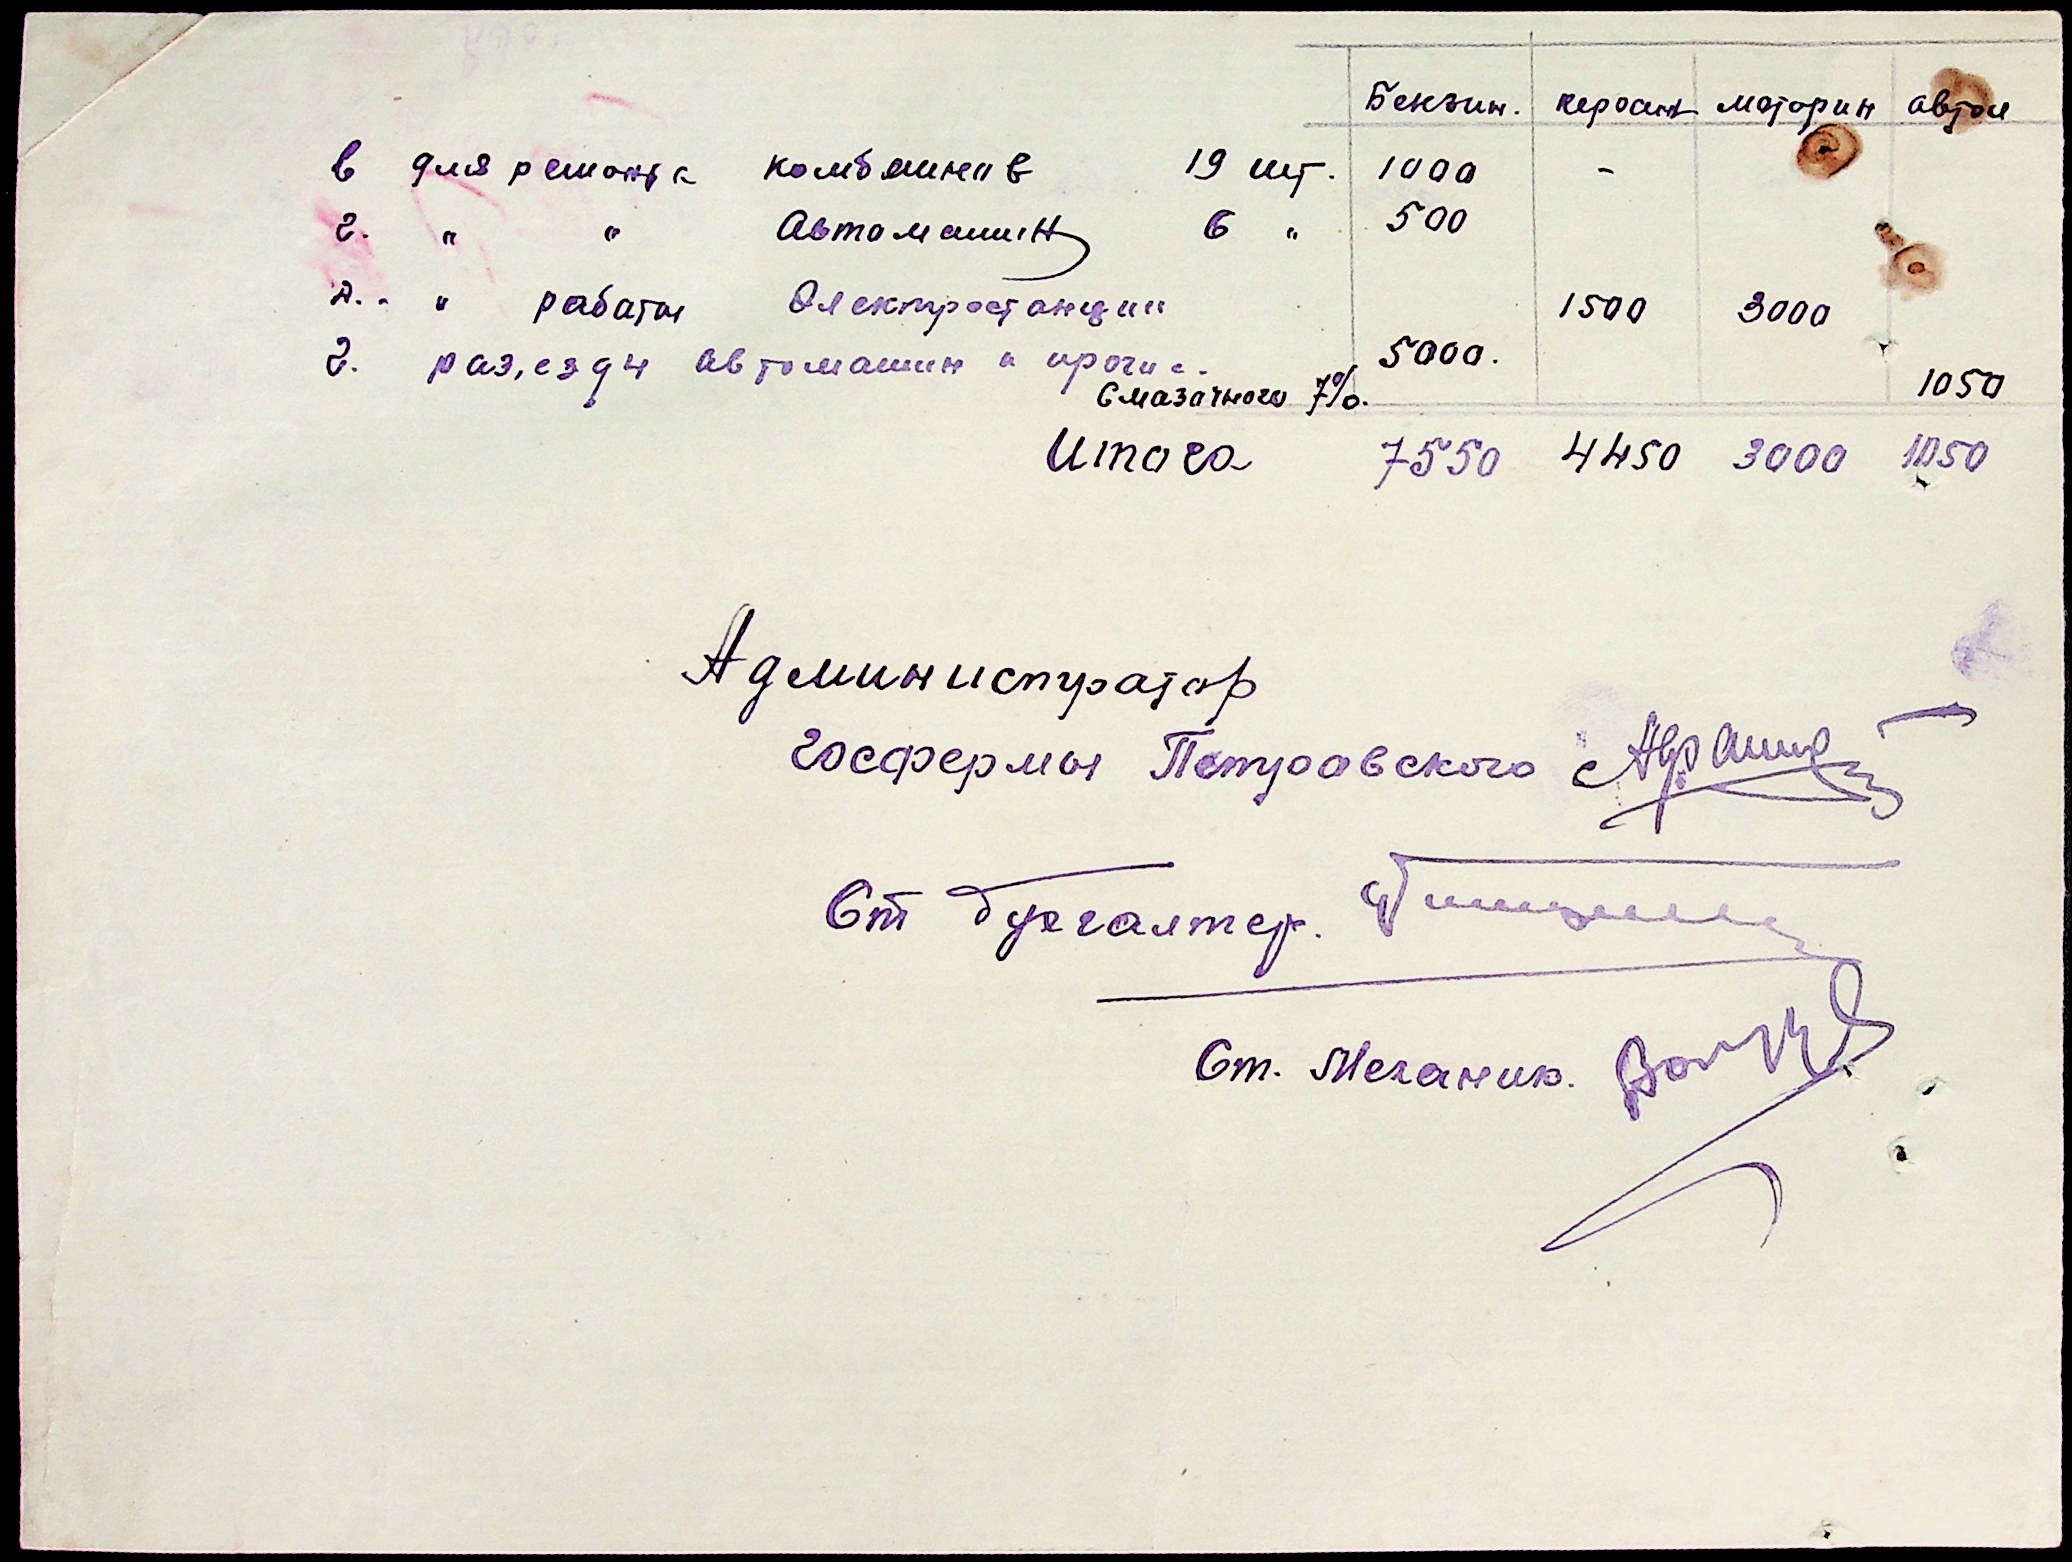 Бензин. керосин моторин автол
в для ремонта комбайнав 19 шт. 1000 -
г. " " Автомашин 6 " 500
д. - " работы Електростанции 1500 3000
г. раз,езды автомашин и прочие. 5000.
Смазачного 7%. 1050
Итого 7550 4450 3000 1050
Администратор
Госфермы Петровского
Ст бухгалтер.
Ст. Механик.